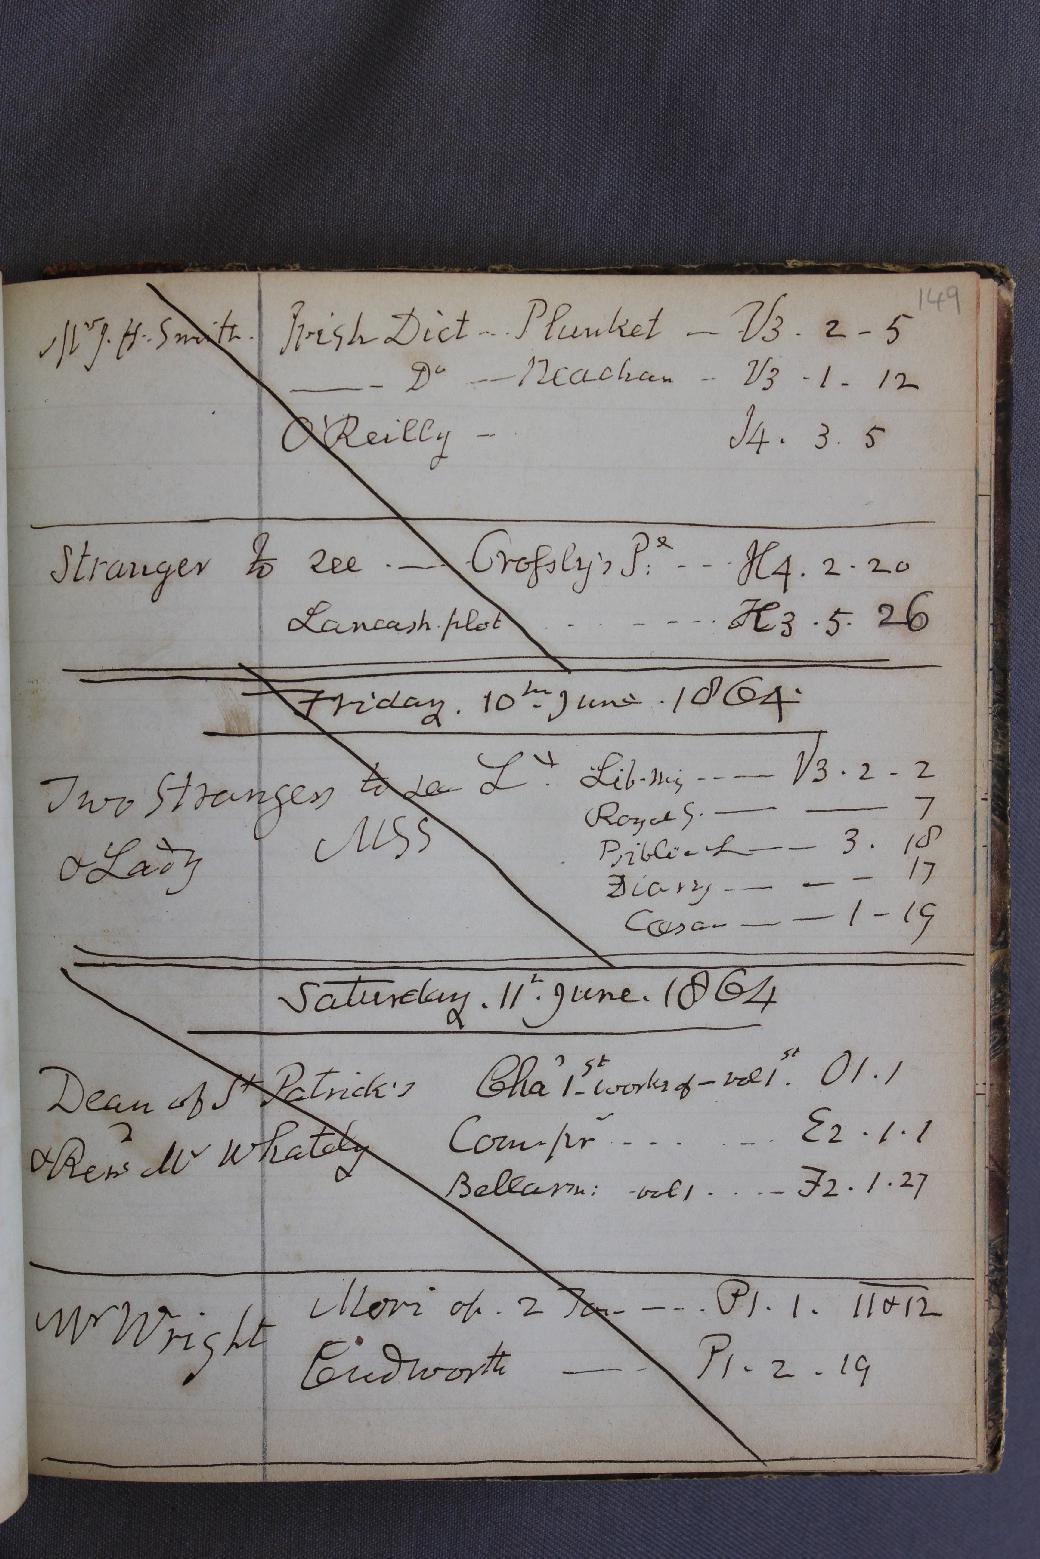 149
Mr J. H. Smith. Irish Dict - Plunket - V3. 2 - 5
Do - Neachan - V3 - 1 - 12
O'Reilly - J4. 3. 5
Stranger to see - Crossly's - H4. 2. 20
Lancash. plot - H3. 5. 26
Friday. 10th June. 1864.
Two Strangers to see Lib. - V3. 2 - 2
MSS Royal S. - 7
& Lady - 3. 18
Diary - 17
1 - 19
Saturday. 11th June. 1864
Dean of St Patrick's Cha's 1st works of - vol 1st. O1. 1
& Revd Mr Whately E2. 1. 1
Bellarm: vol 1. - F2. 1. 27
Mr Wright Mori op. 2 - P1. 1. 11 & 12
Cudworth - P1. 2. 19